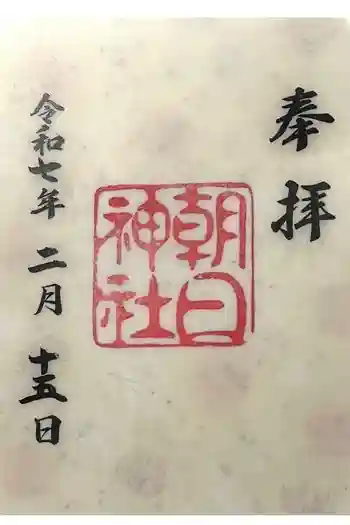 奉拝
朝日
神社
令和七年二月十五日